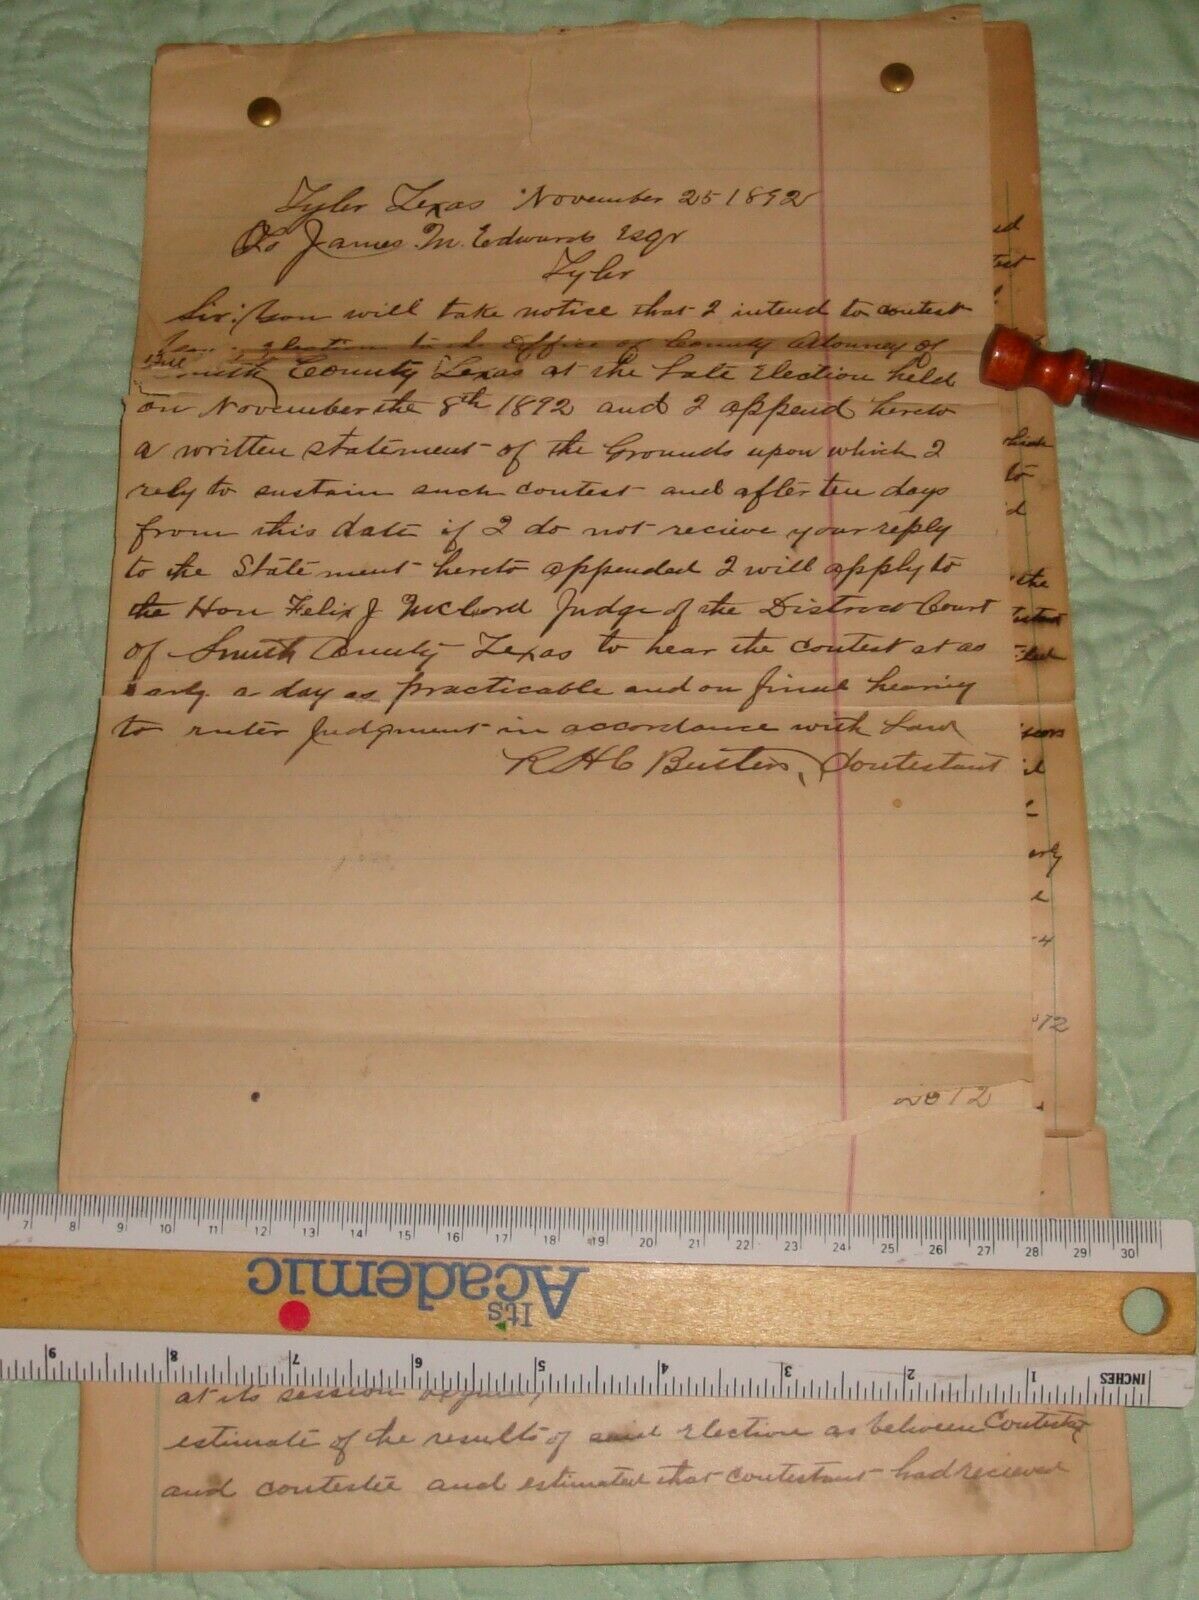 Tyler Texas November 25 1892
To James M. Edwards Esqr
Tyler
Sir: You will take notice that I intend to contest
your election to the Office of County Atorney of
Smith County Texas at the Late Election held
on November the 8th 1892 and I append hereto
a written statement of the Grounds upon which I
rely to sustain such contest and after ten days
from this date if I do not recieve your reply
to the Statement hereto appended I will apply to
the Hon Felix J McCord Judge of the District Court
of Smith County Texas to hear the contest at as
early a day as practicable and on final hearing
to enter Judgment in accordance with Law
R H C Contestant
no 12
ed
test
which
to
id
the
erly
e
12
7 8 9 10 11 12 13 14 15 16 17 18 19 20 21 22 23 24 25 26 27 28 29 30
It's
Academic
INCHES 1 2 3 4 5 6 7 8 9
at its session
estimate of the results of said election as between Contestor
and contestee and estimated that contestant had recieved